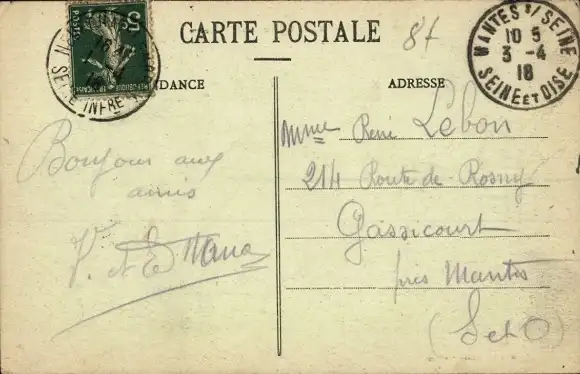 CARTE POSTALE
8f
MANTES S/ SEINE
10 5
3 -4
18
SEINE ET OISE
SEINE INFRE
5
NDANCE
ADRESSE
Bonjour aux
amis
V. et E
Mme René Lebon
214 Route de Rosny
Gassicourt
près Mantes
(S et O)